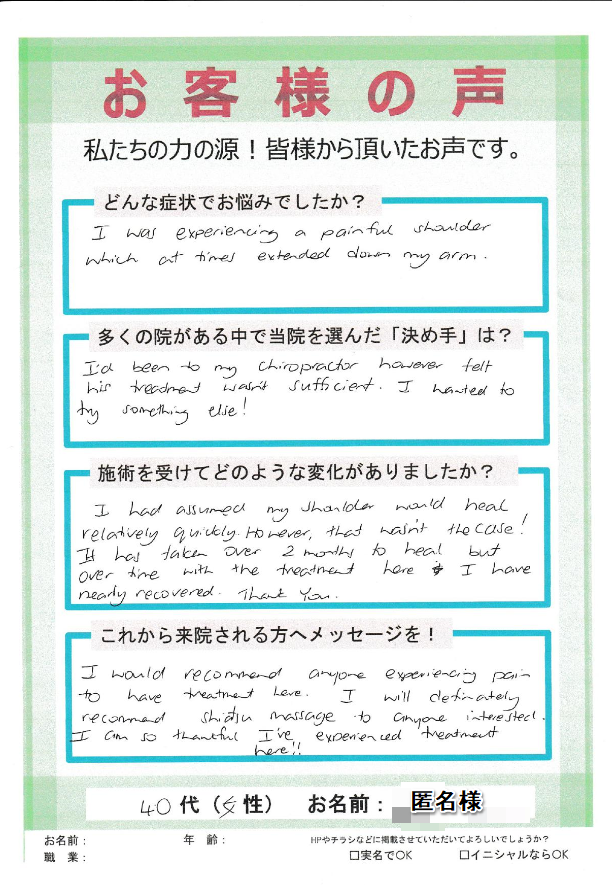 お客様の声
私たちの力の源！皆様から頂いたお声です。
どんな症状でお悩みでしたか？
I was experiencing a painful shoulder
which at times extended down my arm.
多くの院がある中で当院を選んだ「決め手」は？
I'd been to my chiropractor however felt
his treatment wasn't sufficient. I wanted to
try something else!
施術を受けてどのような変化がありましたか？
I had assumed my shoulder would heal
relatively quickly. However, that wasn't the case!
It has taken over 2 months to heal but
over time with the treatment here I have
nearly recovered. Thank You.
これから来院される方へメッセージを！
I would recommend anyone experiencing pain
to have treatment here. I will definately
recommend shiatsu massage to anyone interested.
I am so thankful I've experienced treatment
here!!
40代（女性） お名前： 匿名様
お名前： 年 齢： HPやチラシなどに掲載させていただいてよろしいでしょうか？
職 業： □実名でOK □イニシャルならOK